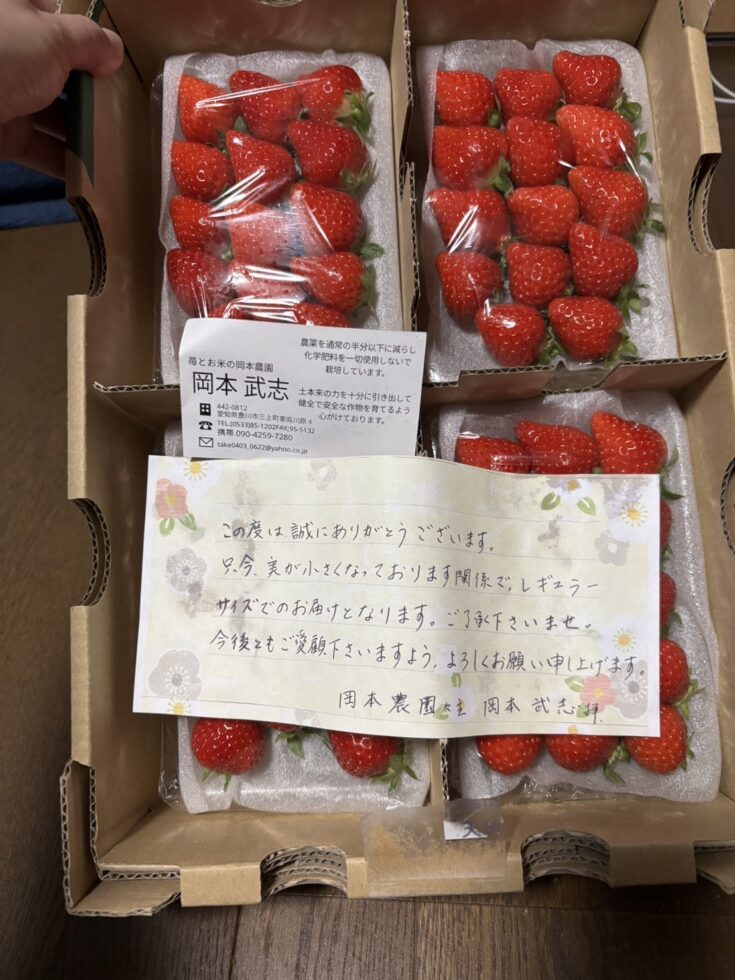 苺とお米の岡本農園
岡本 武志
442-0812
愛知県豊川市三上町東高川原４
TEL.(0533)85-1202FAX;95-5132
携帯.090-4259-7280
take0403_0622@yahoo.co.jp
農薬を通常の半分以下に減らし
化学肥料を一切使用しないで
栽培しています。
土本来の力を十分に引き出して
健全で安全な作物を育てるよう
心がけております。
この度は、誠にありがとうございます。
只今、実が小さくなっております関係で、レギュラー
サイズでのお届けとなります。ご了承下さいませ。
今後ともご愛顧下さいますよう、よろしくお願い申し上げます。
岡本農園 岡本武志 拝